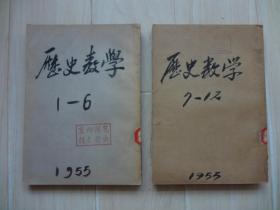 歷史教學
1-6
1955
歷史教学
7-12
1955